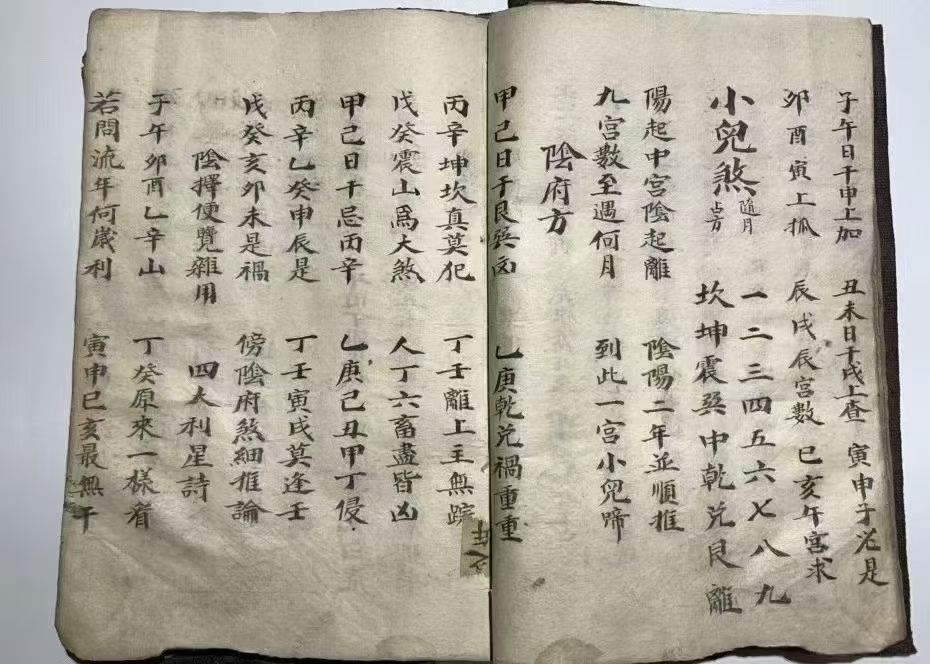 子午日干申上加 丑未日干戌上查 寅申子泛是
卯酉寅上抓 辰戌辰宮數 巳亥午宮求
小兒煞 隨月占方 一二三四五六七八九
坎坤震巽中乾兌艮離
陽起中宮陰起離 陰陽二年並順推
九宮數至遇何月 到此一宮小兒啼
陰府方
甲己日干艮巽凶 乙庚乾兌禍重重
丙辛坤坎真莫犯 丁壬離上主無蹤
戊癸震山爲大煞 人丁六畜盡皆凶
甲己日干忌丙辛 乙庚己丑甲丁侵
丙辛乙癸申辰是 丁壬寅戌莫逢壬
戊癸亥卯未是禍 傍陰府煞細推論
陰擇便覽雜用 四大利星詩
子午卯酉乙辛山 丁癸原來一樣看
若問流年何歲利 寅申巳亥最無干